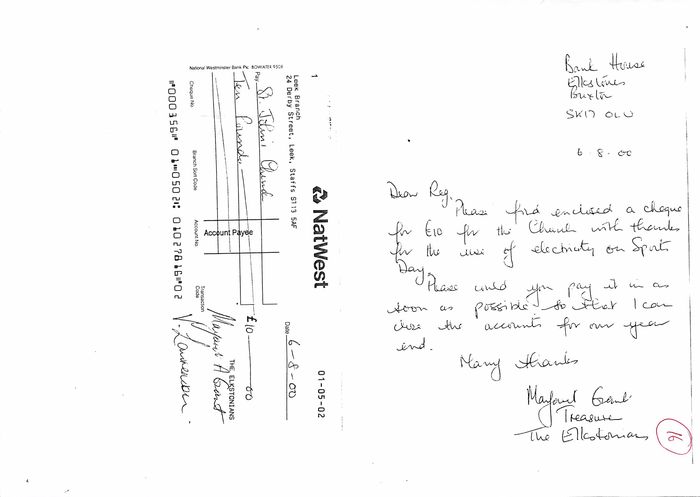 National Westminster Bank Plc
1
Leek Branch
24 Derby Street, Leek, Staffs ST13 5AF
NatWest
01-05-02
Date 6-8-00
Pay St. John's Church
Ten Pounds
£10 — 00
Account Payee
THE ELKSTONIANS
Margaret A Grant
V. Lawrenson.
Cheque No
Branch Sort Code
Account No
Transaction Code
Bank House
Elkstones
Buxton
SK17 0LU
6-8-00
Dear Reg,
Please find enclosed a cheque
for £10 for the Church with thanks
for the use of electricity on Sports
Day.
Please could you pay it in as
soon as possible so that I can
close the accounts for our year
end.
Many thanks
Margaret Grant
Treasurer
The Elkstonians
16